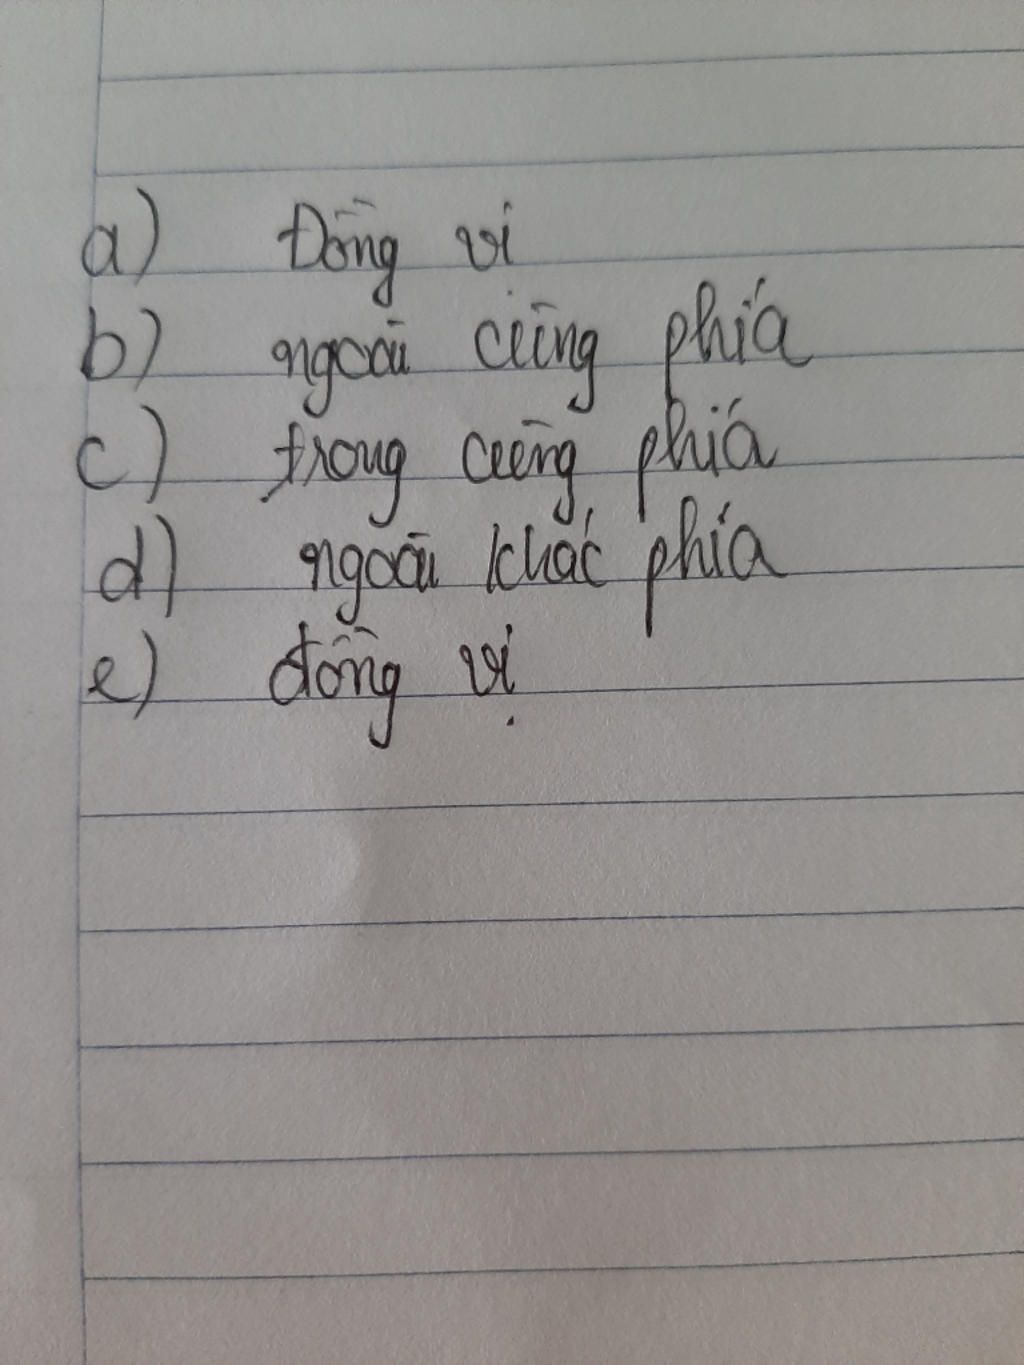 a) Đồng vị
b) ngoài cùng phía
c) trong cùng phía
d) ngoài khác phía
e) đồng vị